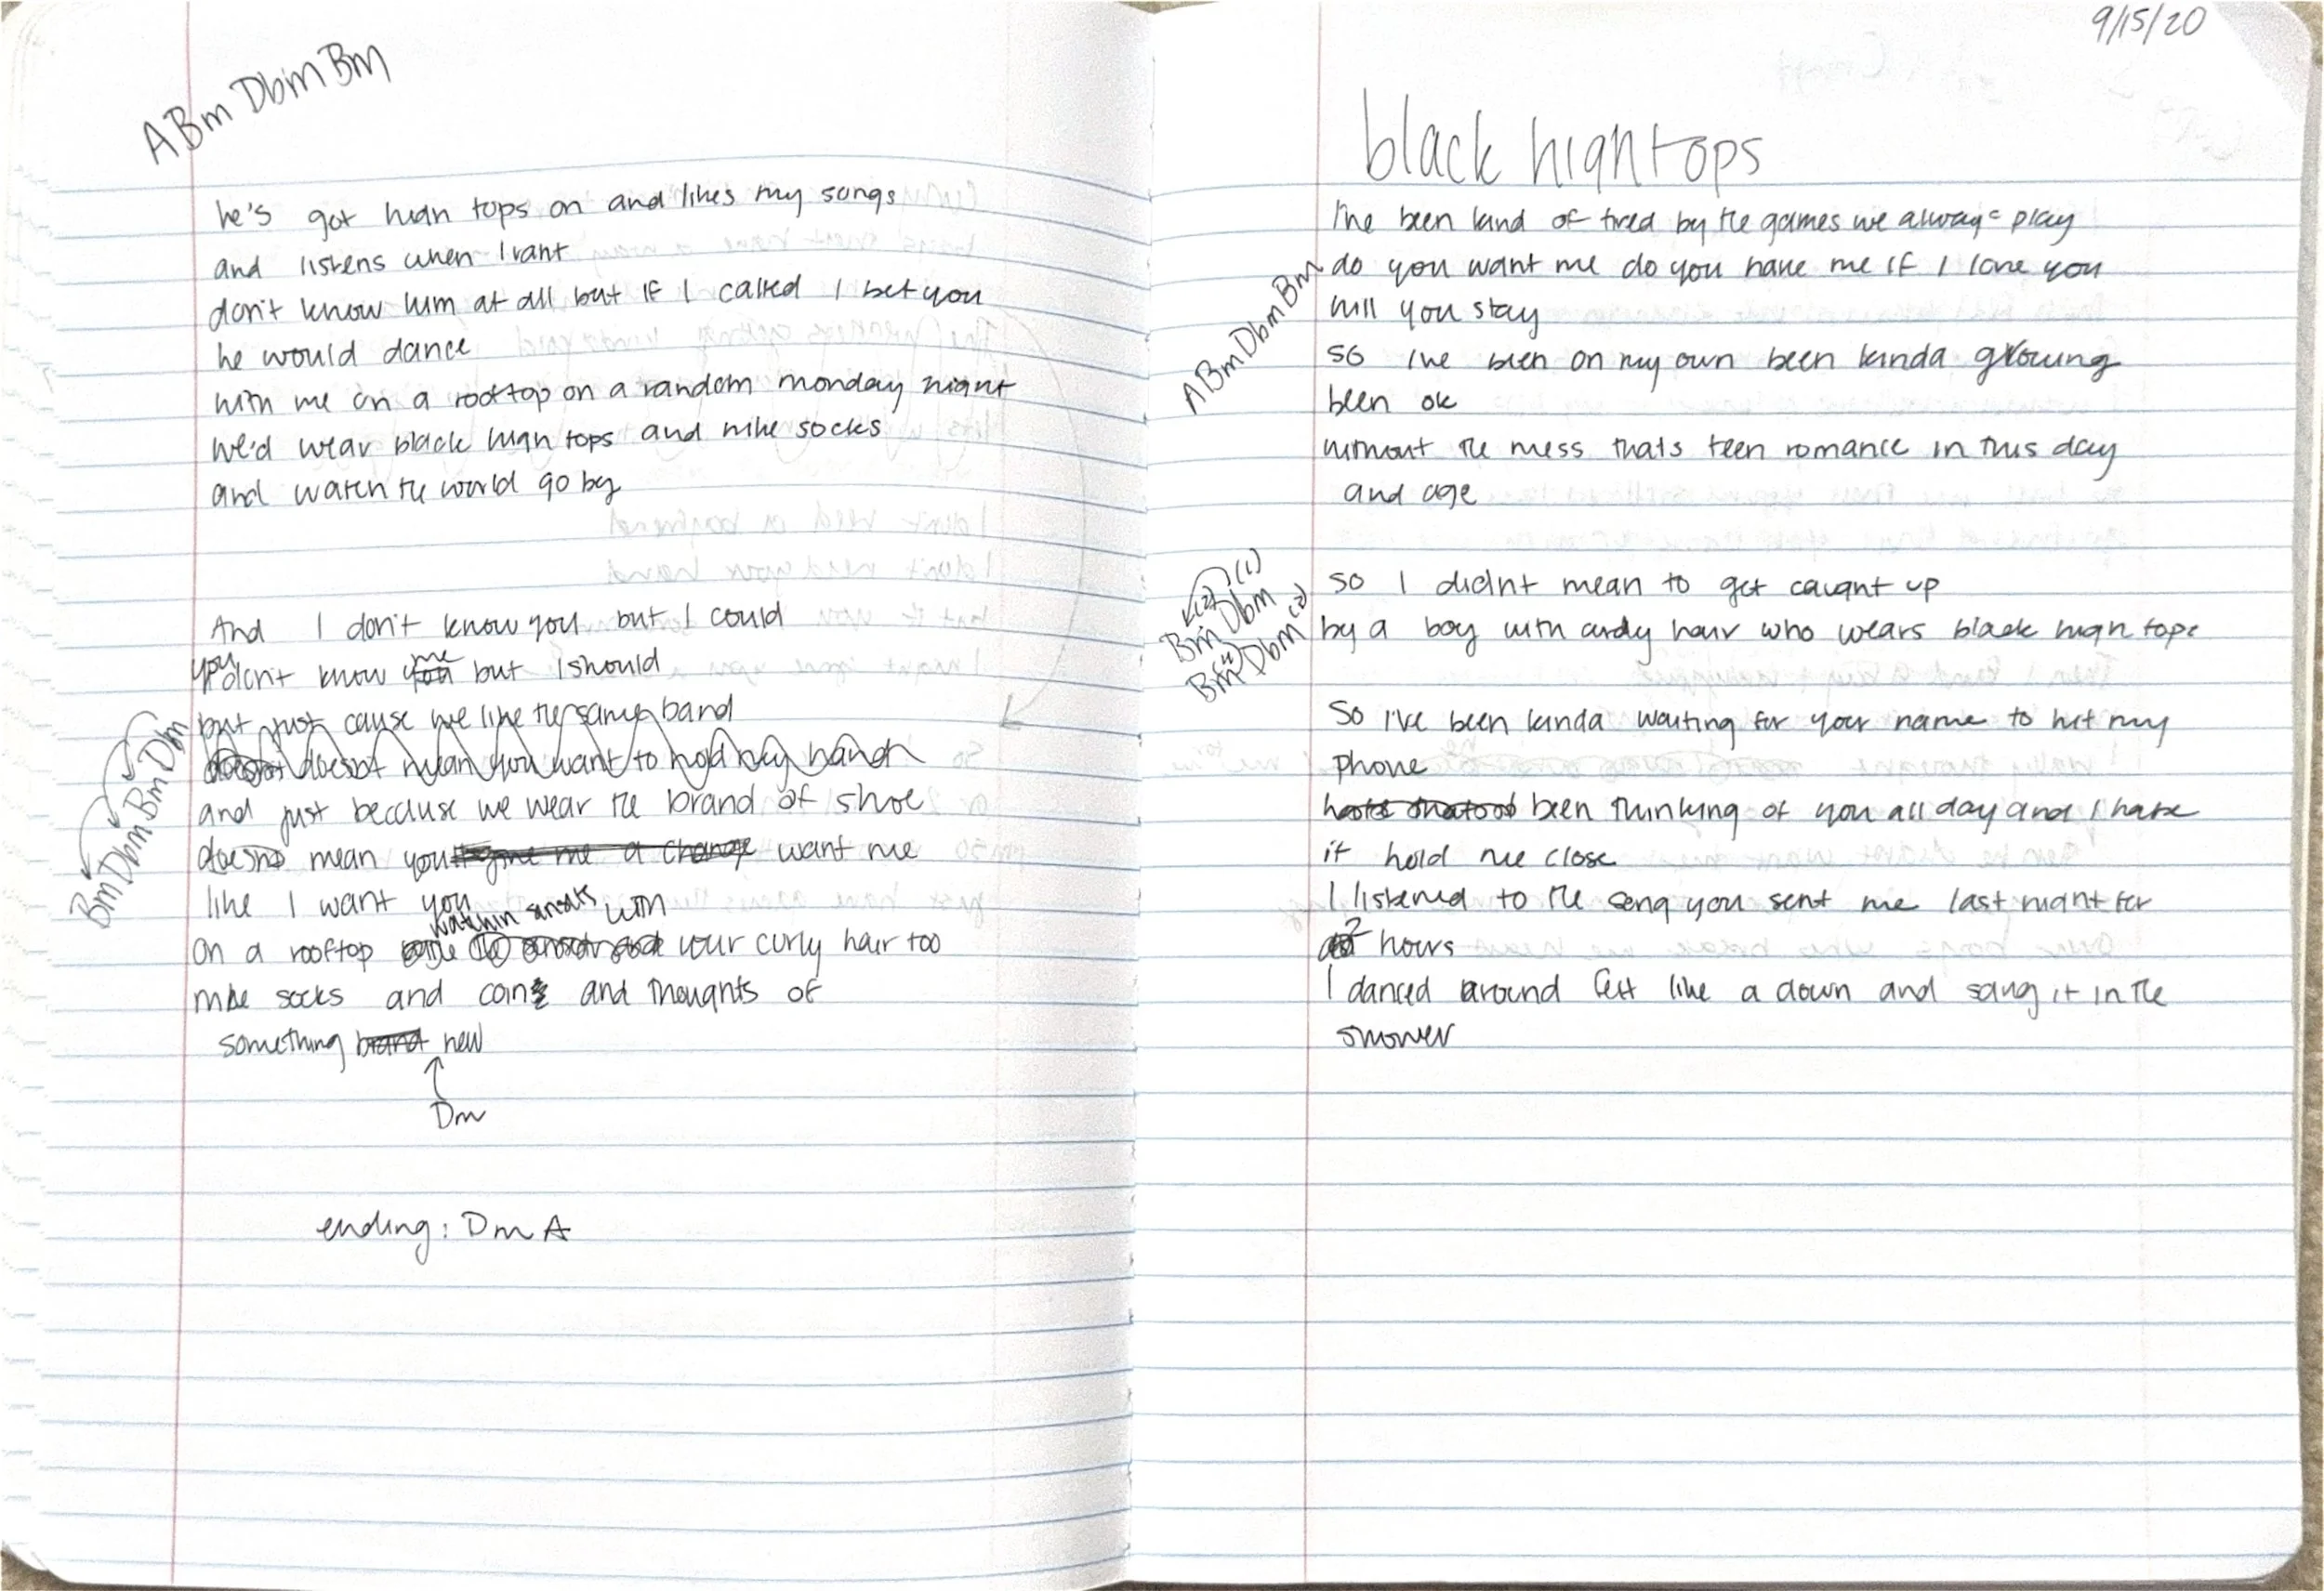 A Bm Dbm Bm
he's got high tops on and likes my songs
and listens when I rant
don't know him at all but if I called I bet you
he would dance
with me on a rooftop on a random monday night
we'd wear black high tops and nike socks
and watch the world go by
And I don't know you but I could
you don't know you me but I should
but just cause we like the same band
doesnt mean you want to hold my hand
and just because we wear the brand of shoe
doesnt mean you give me a change want me
like I want you
watchin with
on a rooftop your curly hair too
nike socks and coins and thoughts of
something brand new
Bm Dbm Bm Dm
Dm
ending: Dm A
9/15/20
black high tops
I've been kind of tired by the games we always play
do you want me do you have me if I love you
will you stay
so I've been on my own been kinda growing
been ok
without the mess thats teen romance in this day
and age
A Bm Dbm Bm
so I didn't mean to get caught up
by a boy with curly hair who wears black high tops
(2) (1)
Bm Dbm
Bm Dbm
So I've been kinda waiting for your name to hit my
phone
been thinking of you all day and I hate
it hold me close
I listened to the song you sent me last night for
2 hours
I danced around felt like a clown and sang it in the
shower